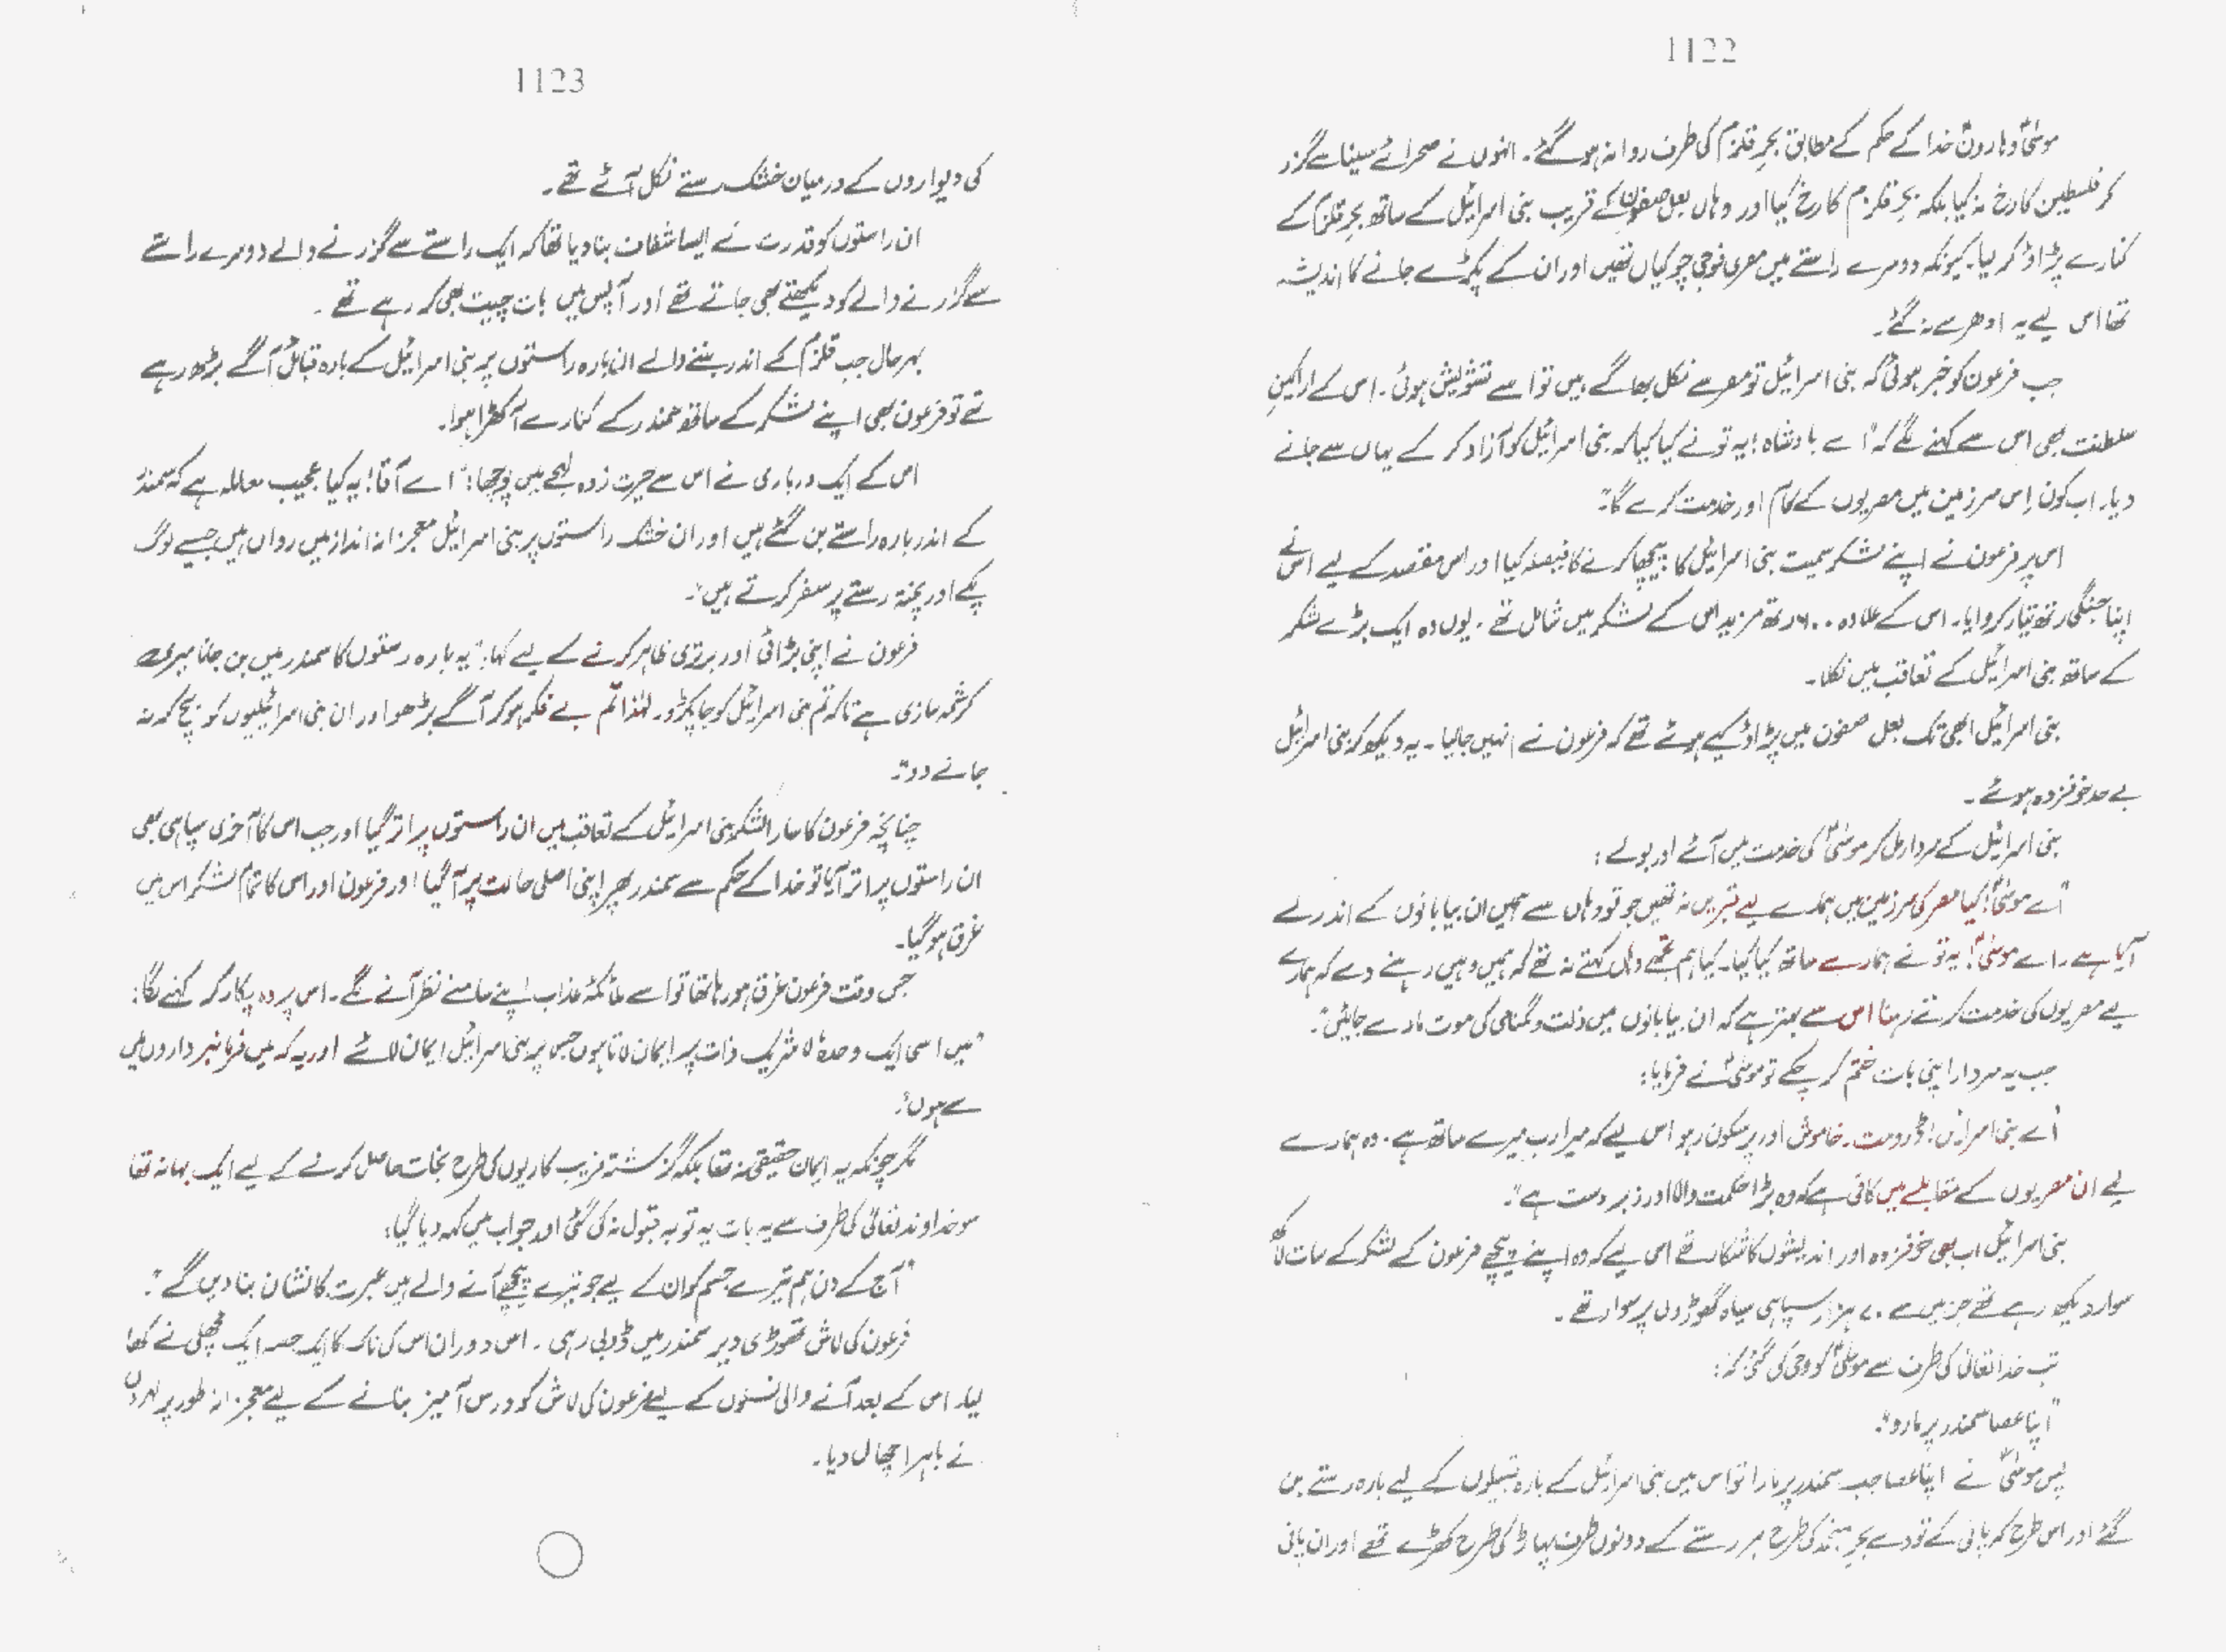 1122
موسیٰؑ وہارونؑ خدا کے حکم کے مطابق بحرِ قلزم کی طرف روانہ ہو گئے۔ انہوں نے صحرائے سینا سے گزر
کر فلسطین کا رخ نہ کیا بلکہ بحرِ قلزم کا رخ کیا اور وہاں بعل صفون کے قریب بنی اسرائیل کے ساتھ بحرِ قلزم کے
کنارے پڑاؤ کر لیا۔ کیونکہ دوسرے راستے میں مصری فوجی چوکیاں تھیں اور ان کے پکڑے جانے کا اندیشہ
تھا اس لیے یہ ادھر سے نہ گئے۔
جب فرعون کو خبر ہوئی کہ بنی اسرائیل تو مصر سے نکل بھاگے ہیں تو اسے تشویش ہوئی۔ اس کے اراکینِ
سلطنت بھی اس سے کہنے لگے کہ "اے بادشاہ! یہ تو نے کیا کیا کہ بنی اسرائیل کو آزاد کر کے یہاں سے جانے
دیا۔ اب کون اِس سرزمین میں مصریوں کے کام اور خدمت کرے گا"۔
اس پر فرعون نے اپنے لشکر سمیت بنی اسرائیل کا پیچھا کرنے کا فیصلہ کیا اور اس مقصد کے لیے اس نے
اپنا جنگی رتھ تیار کروایا۔ اس کے علاوہ ۶۰۰ رتھ مزید اس کے لشکر میں شامل تھے۔ یوں وہ ایک بڑے لشکر
کے ساتھ بنی اسرائیل کے تعاقب میں نکلا۔
بنی اسرائیل ابھی تک بعل صفون میں پڑاؤ کیے ہوئے تھے کہ فرعون نے انہیں جا لیا۔ یہ دیکھ کر بنی اسرائیل
بے حد خوفزدہ ہوئے۔
بنی اسرائیل کے سردار مل کر موسیٰؑ کی خدمت میں آئے اور بولے:
"اے موسیٰؑ! کیا مصر کی سرزمین میں ہمارے لیے قبریں نہ تھیں جو تو وہاں سے ہمیں ان بیابانوں کے اندر لے
آیا ہے۔ اے موسیٰؑ! یہ تو نے ہمارے ساتھ کیا کیا۔ کیا ہم تجھے وہاں کہتے نہ تھے کہ ہمیں وہیں رہنے دے کہ ہمارے
لیے مصریوں کی خدمت کرتے رہنا اس سے بہتر ہے کہ ان بیابانوں میں ذلت و گمنامی کی موت مارے جائیں"۔
جب یہ سردار اپنی بات ختم کر چکے تو موسیٰؑ نے فرمایا:
"اے بنی اسرائیل! ڈرو مت۔ خاموش اور پرسکون رہو اس لیے کہ میرا رب میرے ساتھ ہے۔ وہ ہمارے
لیے ان مصریوں کے مقابلے میں کافی ہے کہ وہ بڑا حکمت والا اور زبردست ہے"۔
بنی اسرائیل اب بھی خوفزدہ اور اندیشوں کا شکار تھے اس لیے کہ وہ اپنے پیچھے فرعون کے لشکر کے سات لاکھ
سوار دیکھ رہے تھے جن میں سے ۷۰ ہزار سپاہی سیاہ گھوڑوں پر سوار تھے۔
تب خدا تعالیٰ کی طرف سے موسیٰؑ کو وحی کی گئی کہ:
"اپنا عصا سمندر پر مارو"۔
پس موسیٰؑ نے اپنا عصا جب سمندر پر مارا تو اس میں بنی اسرائیل کے بارہ قبیلوں کے لیے بارہ رستے بن
گئے اور اس طرح کہ پانی کے تودے بحرِ منجمد کی طرح ہر رستے کے دونوں طرف پہاڑ کی طرح کھڑے تھے اور ان پانی
1123
کی دیواروں کے درمیان خشک رستے نکل آئے تھے۔
ان راستوں کو قدرت نے ایسا شفاف بنا دیا تھا کہ ایک راستے سے گزرنے والے دوسرے راستے
سے گزرنے والے کو دیکھتے بھی جاتے تھے اور آپس میں بات چیت بھی کر رہے تھے۔
بہرحال جب قلزم کے اندر بننے والے ان بارہ راستوں پر بنی اسرائیل کے بارہ قبائل آگے بڑھ رہے
تھے تو فرعون بھی اپنے لشکر کے ساتھ سمندر کے کنارے آ کھڑا ہوا۔
اس کے ایک درباری نے اس سے حیرت زدہ لہجے میں پوچھا: "اے آقا! یہ کیا عجیب معاملہ ہے کہ سمندر
کے اندر بارہ راستے بن گئے ہیں اور ان خشک راستوں پر بنی اسرائیل معجزانہ انداز میں رواں ہیں جیسے لوگ
پکے اور پختہ رستے پر سفر کرتے ہیں"۔
فرعون نے اپنی بڑائی اور برتری ظاہر کرنے کے لیے کہا: "یہ بارہ رستوں کا سمندر میں بن جانا میری
کرشمہ سازی ہے تاکہ تم بنی اسرائیل کو جا پکڑو۔ لہٰذا تم بے فکر ہو کر آگے بڑھو اور ان بنی اسرائیلیوں کو بچ کر نہ
جانے دو"۔
چنانچہ فرعون کا سارا لشکر بنی اسرائیل کے تعاقب میں ان راستوں پر اتر گیا اور جب اس کا آخری سپاہی بھی
ان راستوں پر اتر آیا تو خدا کے حکم سے سمندر پھر اپنی اصلی حالت پر آ گیا اور فرعون اور اس کا تمام لشکر اس میں
غرق ہو گیا۔
جس وقت فرعون غرق ہو رہا تھا تو اسے ملائکۂ عذاب اپنے سامنے نظر آنے لگے۔ اس پر وہ پکار کر کہنے لگا:
"میں اسی ایک وحدہٗ لا شریک ذات پر ایمان لاتا ہوں جس پر بنی اسرائیل ایمان لائے اور یہ کہ میں فرمانبرداروں میں
سے ہوں"۔
مگر چونکہ یہ ایمان حقیقی نہ تھا بلکہ گزشتہ فریب کاریوں کی طرح نجات حاصل کرنے کے لیے ایک بہانہ تھا
سو خداوند تعالیٰ کی طرف سے یہ بات یہ توبہ قبول نہ کی گئی اور جواب میں کہہ دیا گیا:
"آج کے دن ہم تیرے جسم کو ان کے لیے جو تیرے پیچھے آنے والے ہیں عبرت کا نشان بنا دیں گے"۔
فرعون کی لاش تھوڑی دیر سمندر میں ڈوبی رہی۔ اس دوران اس کی ناک کا ایک حصہ ایک مچھلی نے کھا
لیا۔ اس کے بعد آنے والی نسلوں کے لیے فرعون کی لاش کو درس آمیز بنانے کے لیے معجزانہ طور پر لہروں
نے باہر اچھال دیا۔